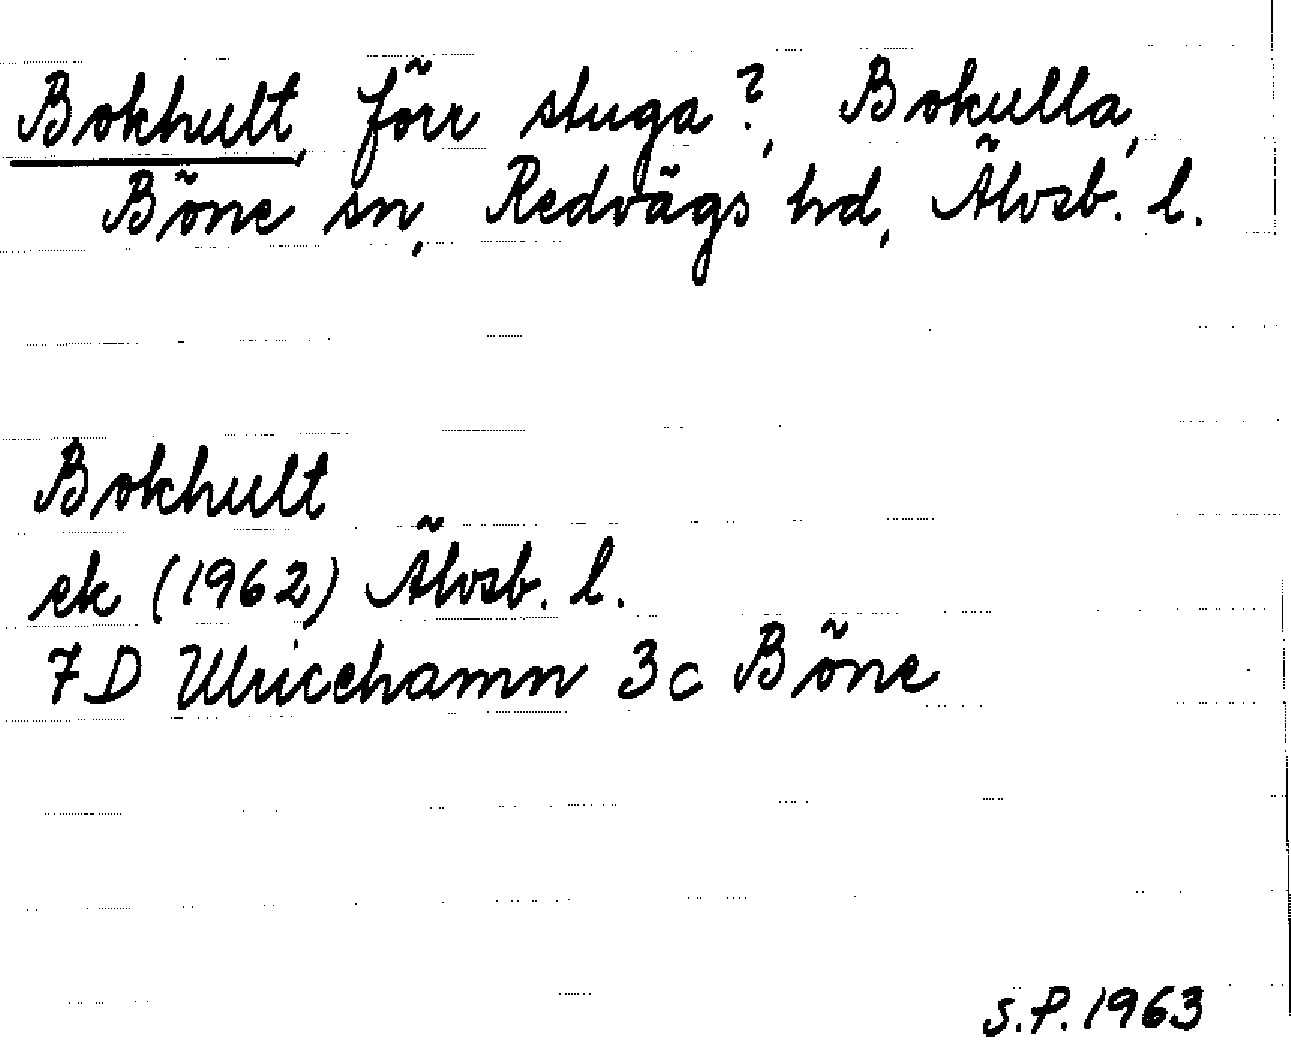 Bokhult, förr stuga?, Bokulla,
Böne sn, Redvägs hd, Älvsb. l.
Bokhult
ek (1962) Älvsb. l.
7D Ulricehamn 3c Böne
S.P. 1963